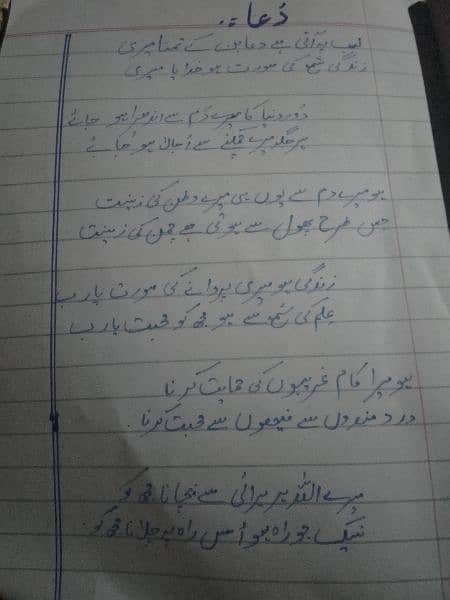 دُعا
لب پہ آتی ہے دعا بن کے تمنا میری
زندگی شمع کی صورت ہو خدایا میری
دُور دنیا کا میرے دَم سے اندھیرا ہو جائے
ہر جگہ میرے چمکنے سے اُجالا ہو جائے
ہو میرے دم سے یوں ہی میرے وطن کی زینت
جس طرح پھول سے ہوتی ہے چمن کی زینت
زندگی ہو میری پروانے کی صورت یارب
عِلم کی شمع سے ہو مجھ کو محبت یارب
ہو میرا کام غریبوں کی حمایت کرنا
درد مندوں سے ضعیفوں سے محبت کرنا
میرے اللہ ہر برائی سے بچانا مجھ کو
نیک جو راہ ہو اُس راہ پر چلانا مجھ کو